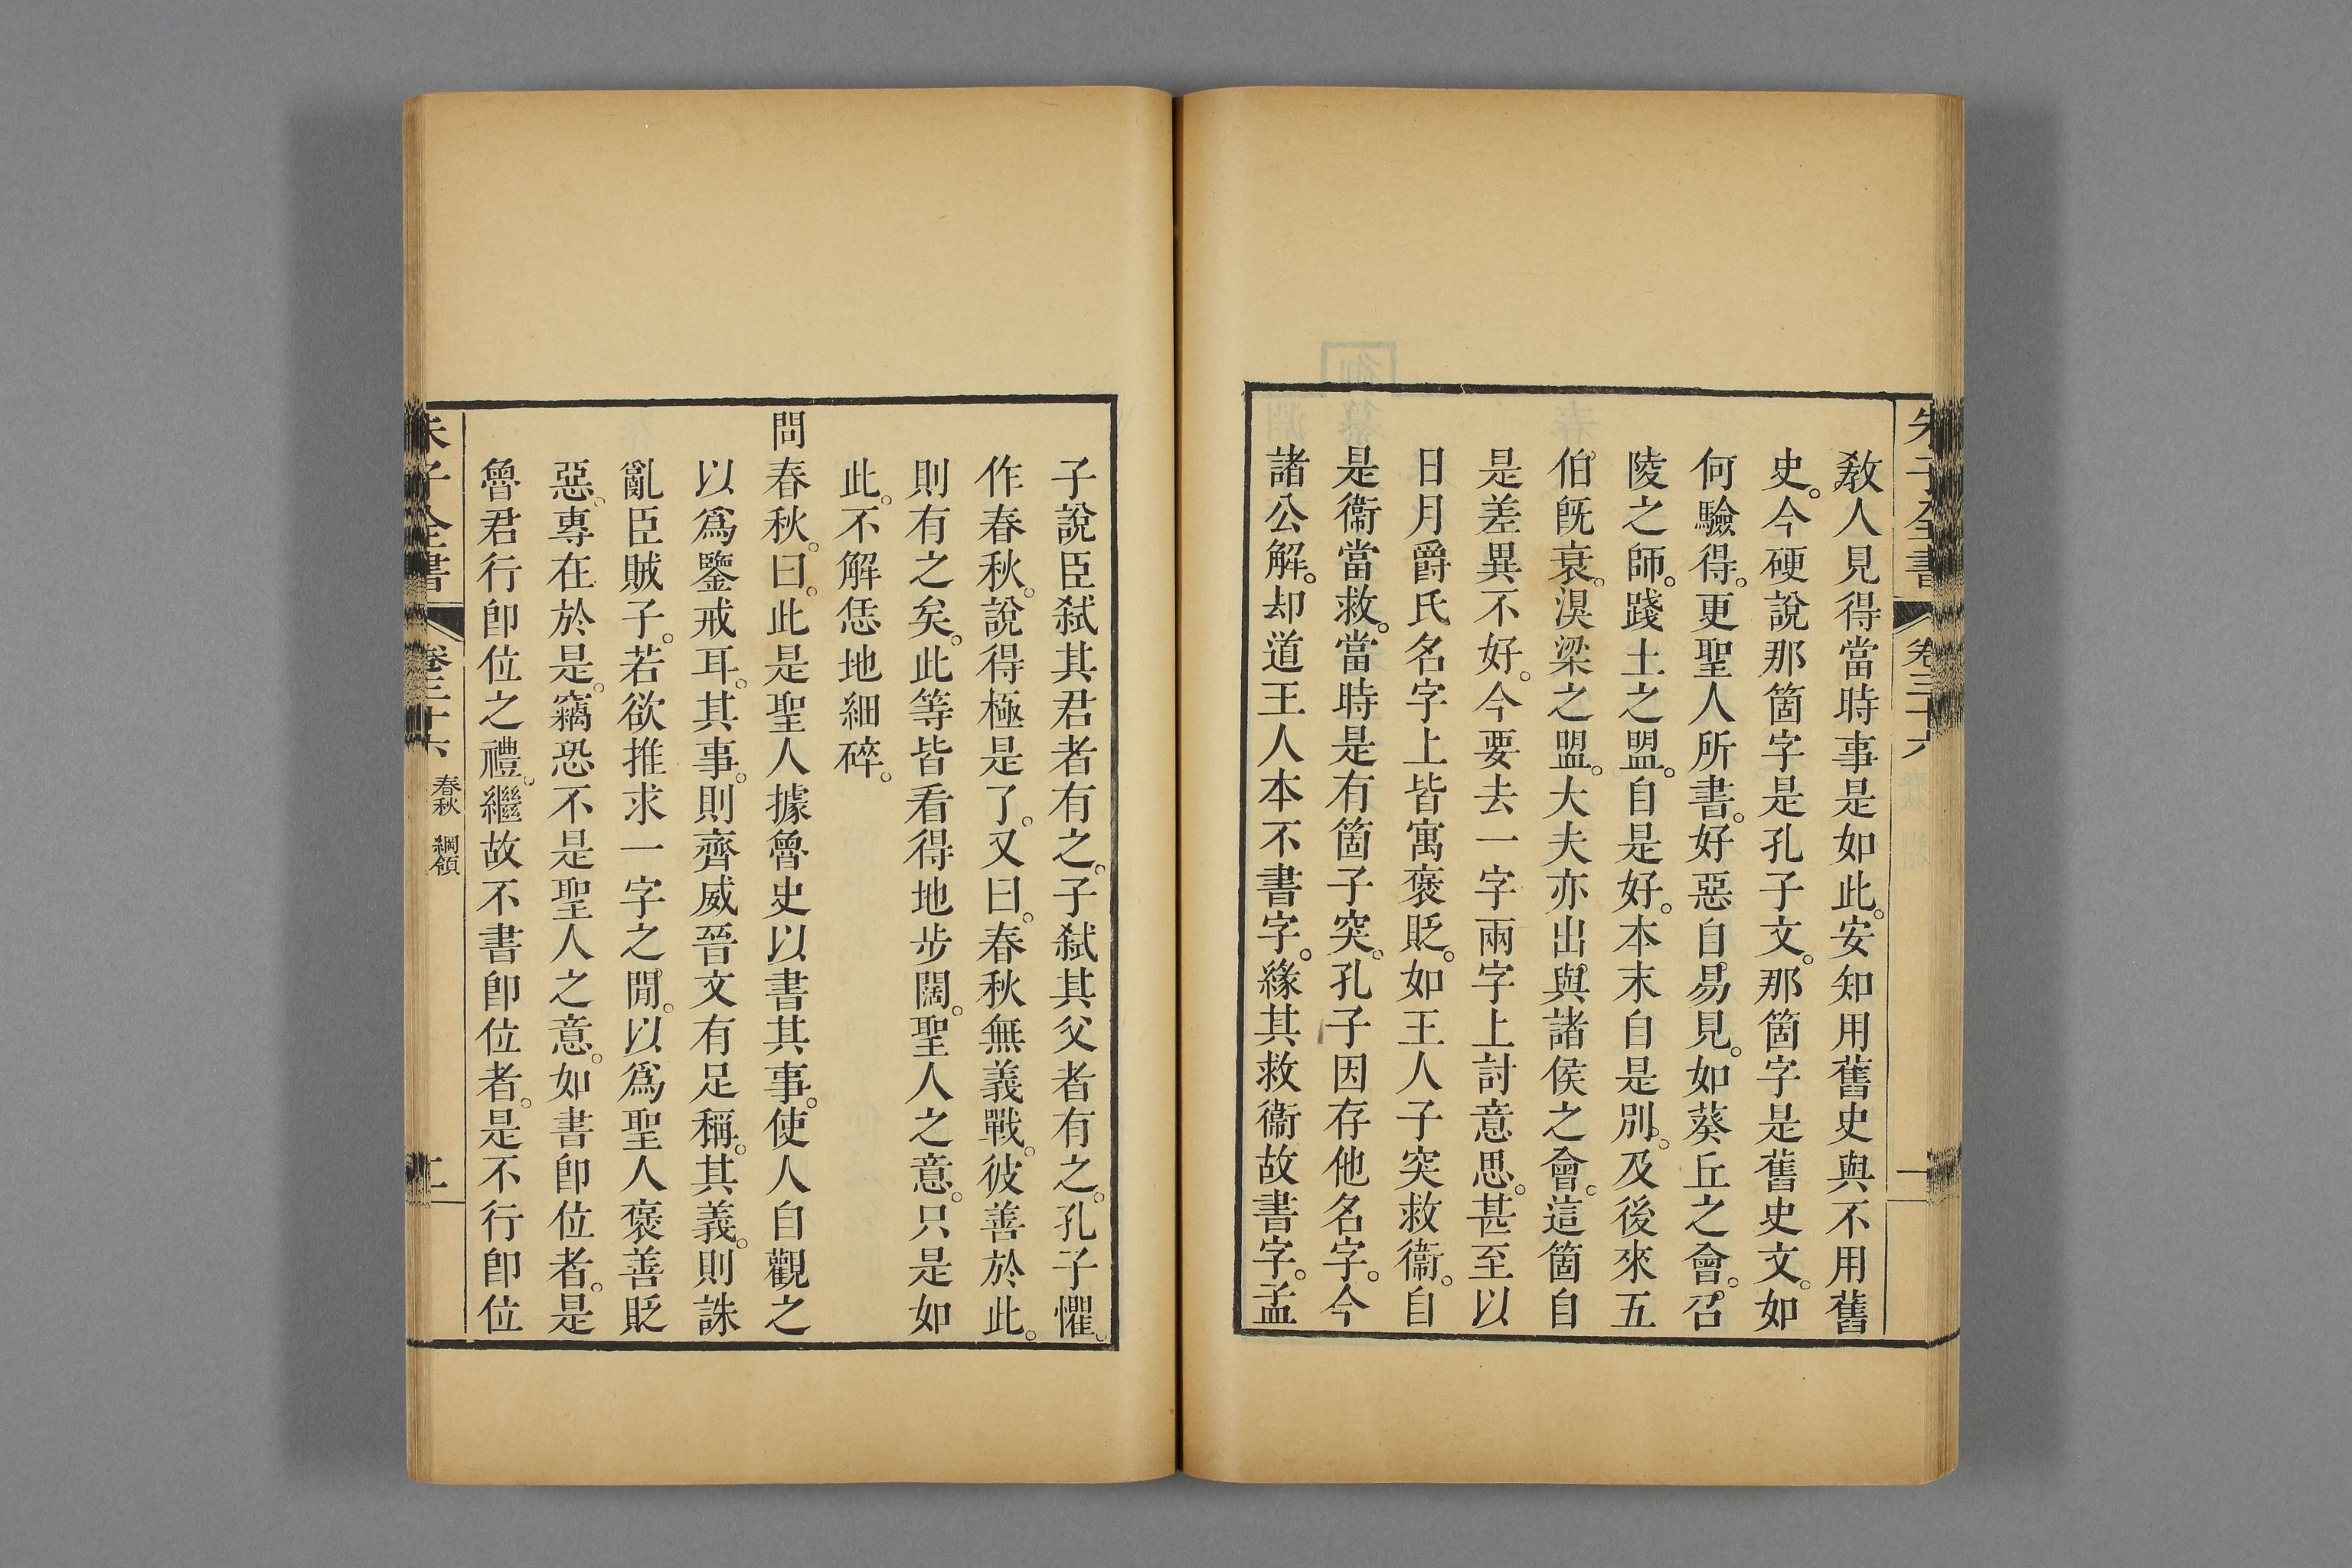 朱子全書 卷三十六 一
教人見得當時事是如此。安知用舊史與不用舊
史。今硬說那箇字是孔子文。那箇字是舊史文。如
何驗得。更聖人所書。好惡自易見。如葵丘之會。召
陵之師。踐土之盟。自是好。本末自是別。及後來五
伯旣衰。湨梁之盟。大夫亦出與諸侯之會。這箇自
是差異不好。今要去一字兩字上討意思。甚至以
日月爵氏名字上皆寓褒貶。如王人子突救衞。自
是衞當救。當時是有箇子突。孔子因存他名字。今
諸公解。却道王人本不書字。緣其救衞故書字。孟
子說臣弒其君者有之。子弒其父者有之。孔子懼。
作春秋。說得極是了。又曰。春秋無義戰。彼善於此。
則有之矣。此等皆看得地步闊。聖人之意。只是如
此。不解恁地細碎。
問春秋。曰。此是聖人據魯史以書其事。使人自觀之
以爲鑒戒耳。其事。則齊威晉文有足稱。其義。則誅
亂臣賊子。若欲推求一字之閒。以爲聖人褒善貶
惡。專在於是。竊恐不是聖人之意。如書卽位者。是
魯君行卽位之禮。繼故不書卽位者。是不行卽位
朱子全書 卷三十六 春秋 綱領 二